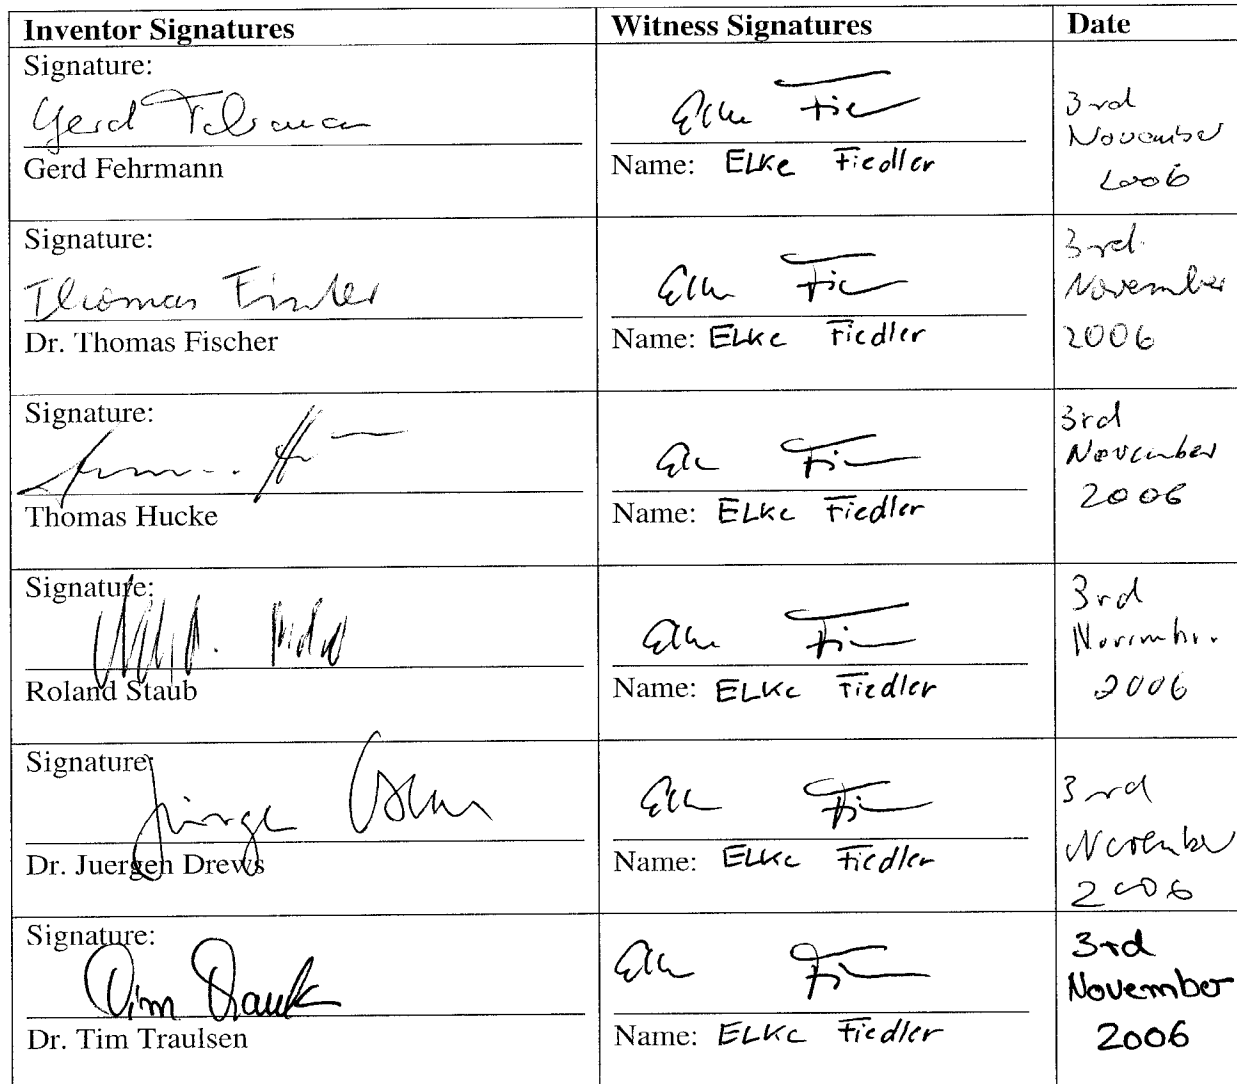 Inventor Signatures
Witness Signatures
Date
Signature:
Gerd Fehrmann
Gerd Fehrmann
Elke Fie
Name: ELKe Fiedler
3rd
November
2006
Signature:
Thomas Fischer
Dr. Thomas Fischer
Elke Fie
Name: ELKe Fiedler
3rd
November
2006
Signature:
Thomas Hucke
Name: ELKe Fiedler
3rd
November
2006
Signature:
Roland Staub
Name: ELKe Fiedler
3rd
November
2006
Signature:
Jürgen
Dr. Juergen Drews
Name: ELKe Fiedler
3rd
November
2006
Signature:
Tim
Dr. Tim Traulsen
Name: ELKe Fiedler
3rd
November
2006